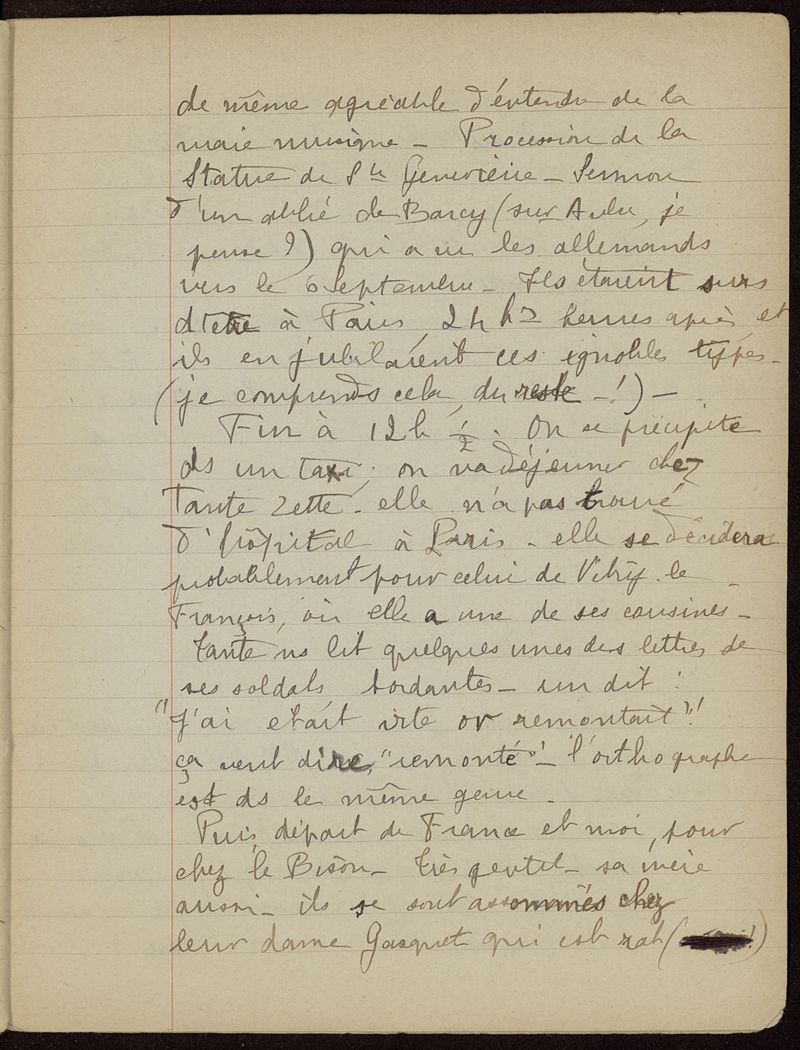 de même agréable d'entendre de la
vraie musique – Procession de la
Statue de Ste Geneviève – Sermon
d'un abbé de Barcy (sur Aube, je
pense ?) qui a vu les allemands
vers le 6 Septembre – Ils étaient surs
d'etre à Paris, 2 h hes heures après, et
ils en jubilaient ces ignobles types –
(je comprends cela, du reste – !) –
Fin à 12h ½. On se précipite
ds un taxi; on va déjeuner chez
Tante Zette – elle n'a pas trouvé
d'hôpital à Paris – elle se décidera
probablement pour celui de Vitry-le-
François, où elle a une de ses cousines –
Tante ns lit quelques unes des lettres de
ses soldats, tordantes – un dit :
"J'ai etait vite or remontait"!
ça veut dire, "remonté"! – l'orthographe
est ds le même genre –
Puis départ de France et moi, pour
chez le Bison – très gentil – sa mère
aussi – ils se sont assommés chez
leur dame Gasquet qui est rat ( !)